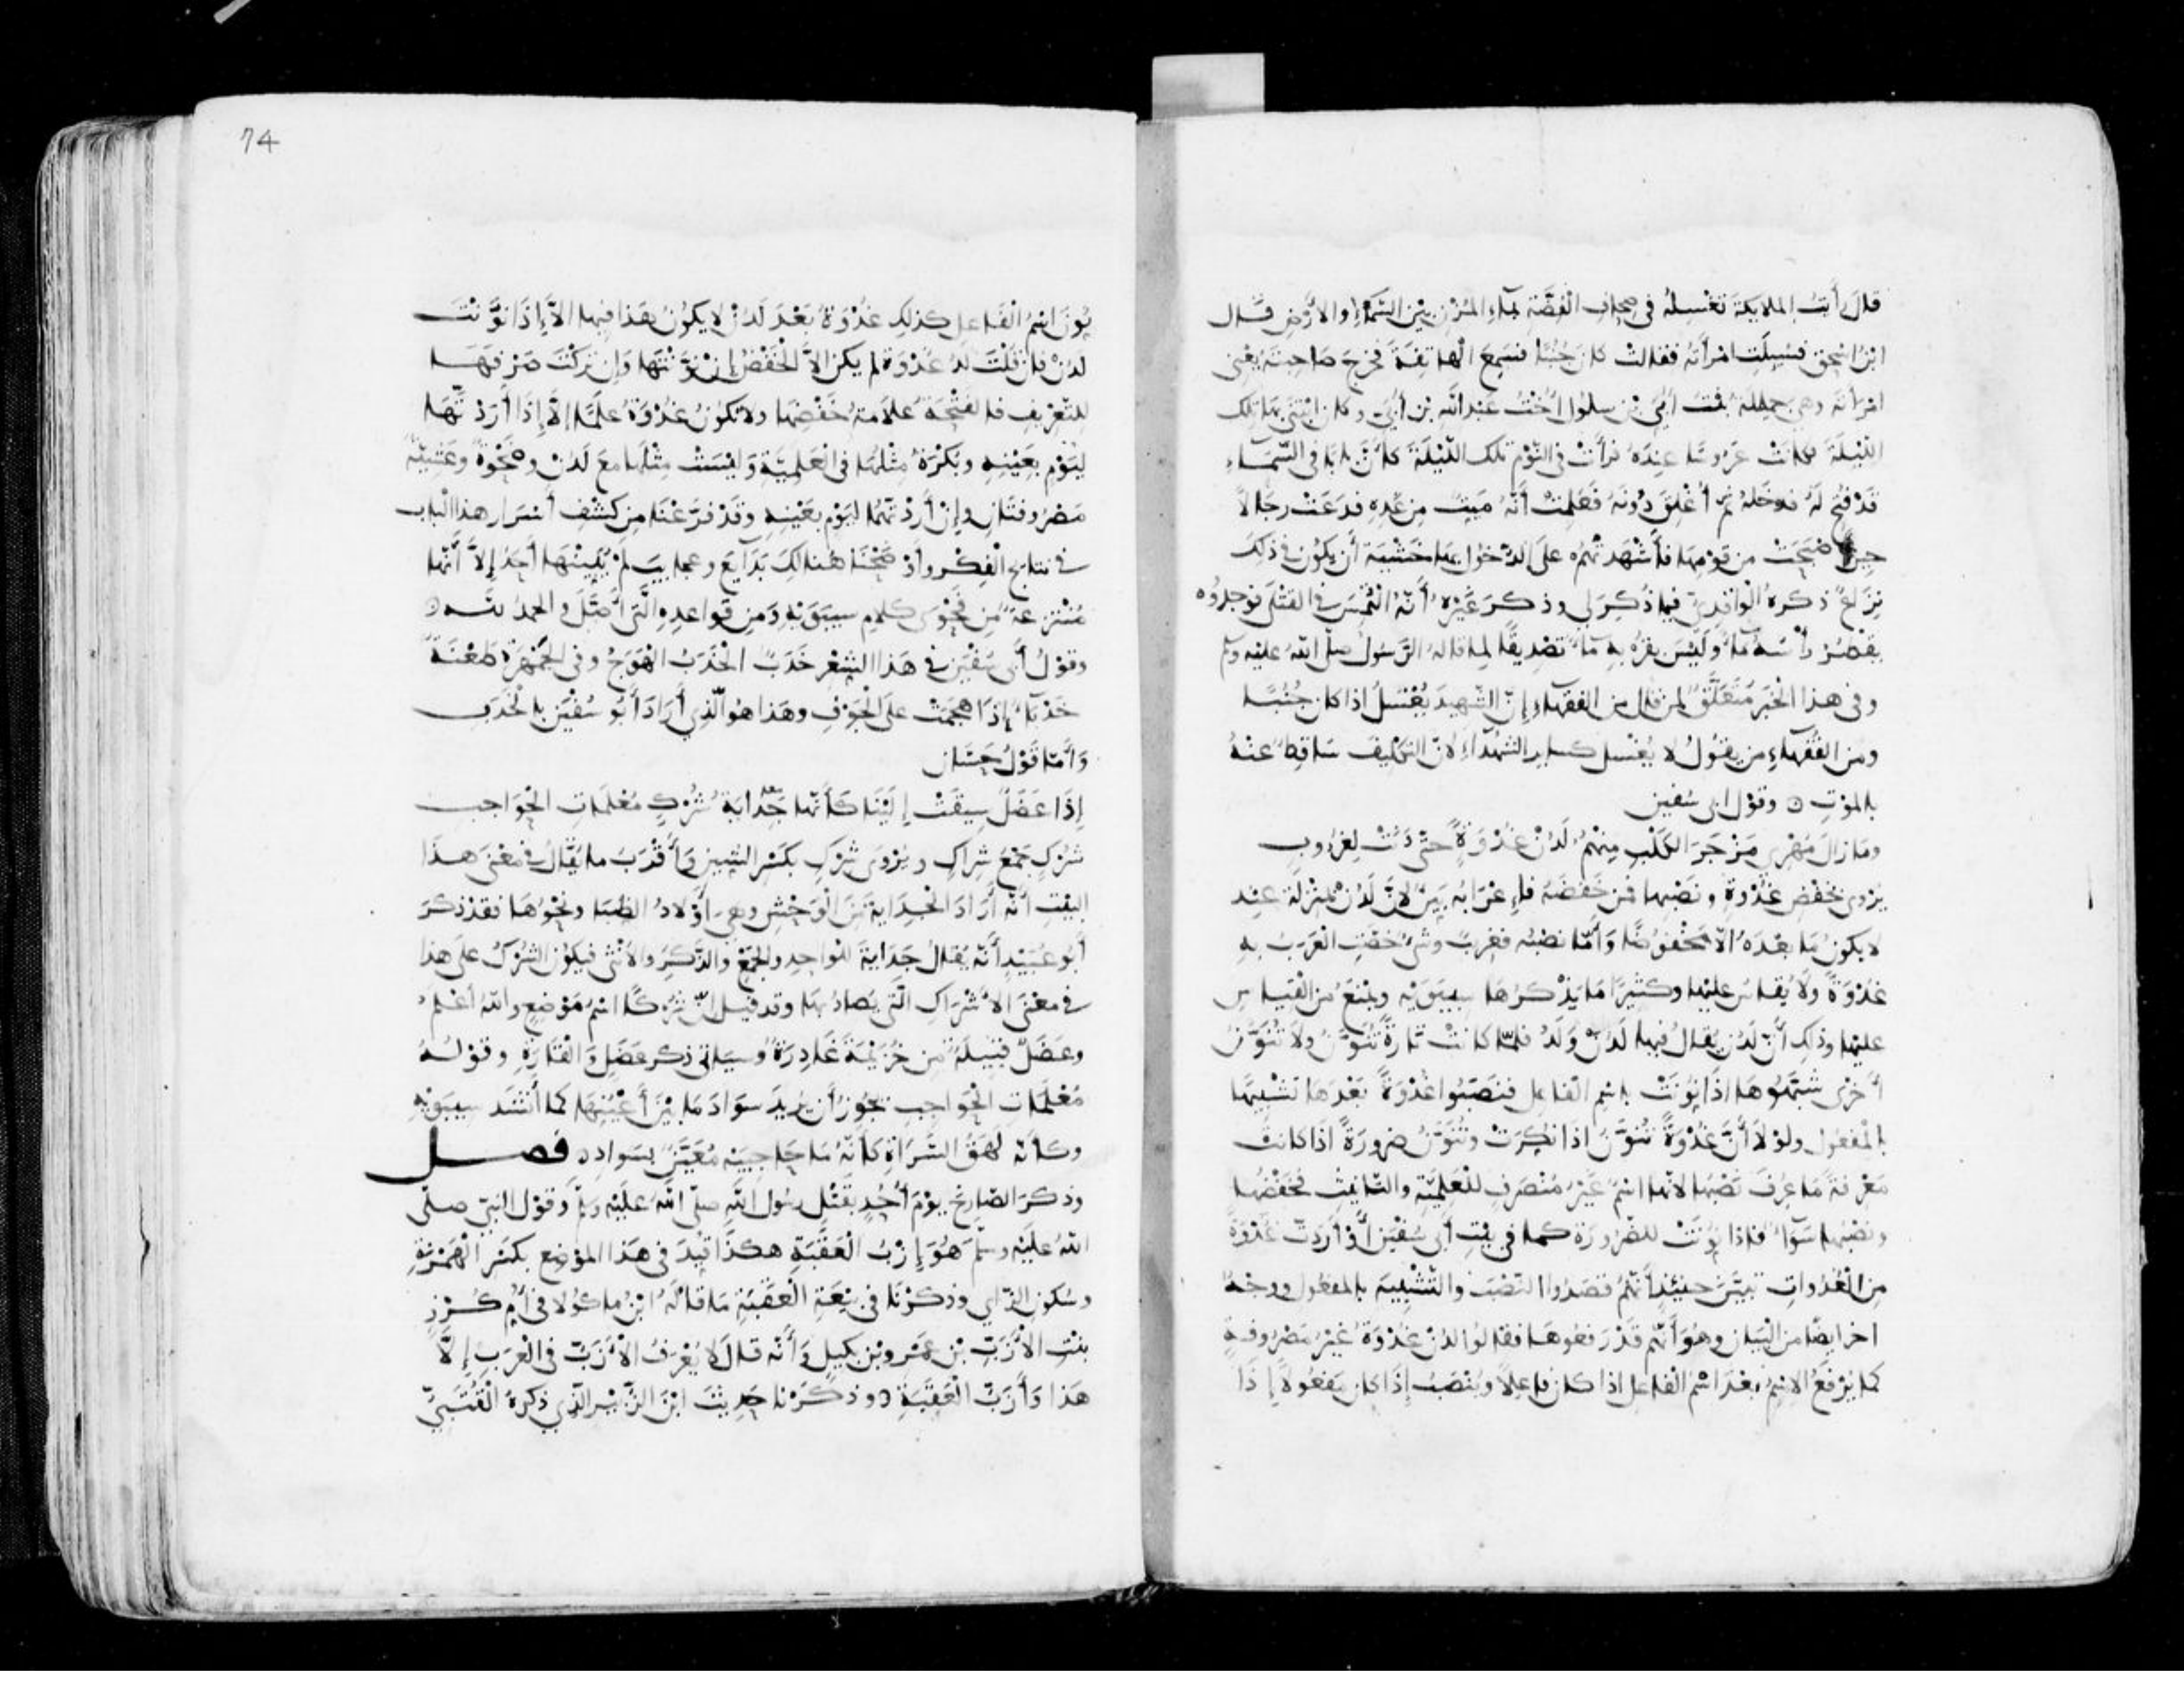 قال رأيت الملايكة تغسله في صحاف الفضة بماء المزن بين السماء والارض قال
ابن اسحق فسيلت امرأته فقالت كان جنبا فسمع الهاتفة فخرج صاحبته يعني
امرأته وهي جميلة بنت أبي بن سلول أخت عبد الله بن أبي وكان ابتنى بها تلك
الليلة فكانت عروسا عنده فرأت في النوم تلك الليلة كأن بابا في السماء
قد فتح له فدخله ثم أغلق دونه فعلمت أنه ميت من غده فدعت رجالا
حين اصبحت من قومها فأشهدتهم على الدخول بها خشية أن يكون في ذلك
نزاع ذكره الواقدي فيما ذكر لي وذكر غيره أنه التمس في القتلى فوجدوه
يقطر رأسه ماء وليس بقربه ماء تصديقا لما قاله الرسول صلى الله عليه وسلم
وفي هذا الخبر متعلق لمن قال من الفقهاء إن الشهيد يغسل اذا كان جنبا
ومن الفقهاء من يقول لا يغسل كساير الشهداء لان التكليف ساقط عنه
بالموت ۞ وقول ابي سفين
وما زال مهري مزجر الكلب منهم لدن غدوة حتى دنت لغروب
يروى بخفض غدوة ونصبها فمن خفضه فإعرابه بين لان لدن بمنزلة عند
لا يكون ما بعده الا مخفوضا وأما نصبه فغريب وشيء خصت العرب به
غدوة ولا يقاس عليها وكثيرا ما يذكرها سيبويه ويمنع من القياس
عليها وذلك أن لدن يقال فيها لدن ولد فلما كانت تارة تنون ولا تنون
أخرى شبهوها اذا نونت باسم الفاعل فنصبوا غدوة بعدها تشبيها
بالمفعول ولولا أن غدوة تنون اذا نكرت وتنون ضرورة اذا كانت
معرفة ما عرف نصبها لانها اسم غير منصرف للعلمية والتأنيث فخفضها
ونصبها سواء فاذا نونت للضرورة كما في بيت أبي سفين أو أردت غدوة
من الغدوات تبين حينئذ أنهم قصدوا النصب والتشبيه بالمفعول ووجه
اخر ايضا من البيان وهو أنهم قد رفعوها فقالوا لدن غدوة غير مصروفة
كما يرفع الاسم بعد اسم الفاعل اذا كان فاعلا وينصب إذا كان مفعولا إذا
74
نون اسم الفاعل كذلك غدوة بعد لدن لا يكون هذا فيها الا إذا نونت
لدن فان قلت لد غدوة لم يكن إلا الخفض إن نونتها وإن تركت صرفها
للتعريف فالفتحة علامة خفضها ولا تكون غدوة علما إلا إذا أردتها
ليوم بعينه وبكرة مثلها في العلمية وليست مثلها مع لدن وضحوة وعشية
مصروفتان وإن أردتهما ليوم بعينه وقد فرغنا من كشف أسرار هذا الباب
في نتايج الفكر وأوضحنا هنالك بدايع وعجايب لم يبينها أحد إلا أنها
منتزعة من فحوى كلام سيبويه ومن قواعده التي أصل والحمد لله ۞
وقول أبي سفين في هذا الشعر خدب الخدب الهوج وفي الجمهرة طعنة
خدباء إذا هجمت على الجوف وهذا هو الذي أراد أبو سفين بالخدب
وأما قول حسان
إذا عضل سيقت إلينا كأنها جداية شرك معلمات الحواجب
شرك جمع شراك ويروى شرك بكسر الشين وأقرب ما يقال في معنى هذا
البيت أنه أراد الجداية من الوحش وهي أولاد الظبا ونحوها فقد ذكر
أبو عبيد أنه يقال جداية للواحد والجمع والذكر والأنثى فيكون الشرك على هذا
في معنى الأشراك التي يصاد بها وقد قيل إن شركا اسم موضع والله أعلم
وعضل قبيلة من خزيمة غادرة وسيأتي ذكر عضل والقارة وقوله
معلمات الحواجب يجوز أن يريد سواد ما بين أعينها كما أنشد سيبويه
وكأنه لهق السراة كأنه ما حاجبيه معين بسواد ۞ فصل
وذكر الصارخ يوم أحد بقتل رسول الله صلى الله عليه وسلم وقول النبي صلى
الله عليه وسلم هو إزب العقبة هكذا قيد في هذا الموضع بكسر الهمزة
وسكون الزاي وذكرنا في بيعة العقبة ما قاله ابن ماكولا في أم كرز
بنت الأزب بن عمرو بن بكيل وأنه قال لا يعرف الأزب في العرب إلا
هذا وأزب العقبة ۞ وذكرنا حديث ابن الزبير الذي ذكره القتبي